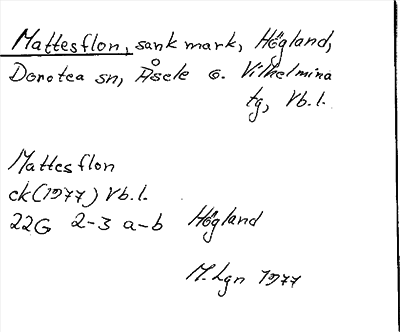 Mattesflon, sank mark, Högland,
Dorotea sn, Åsele o. Vilhelmina
tg, Vb.l.
Mattesflon
ek (1977) Vb.l.
22G 2-3 a-b Högland
M.Lgn 1977